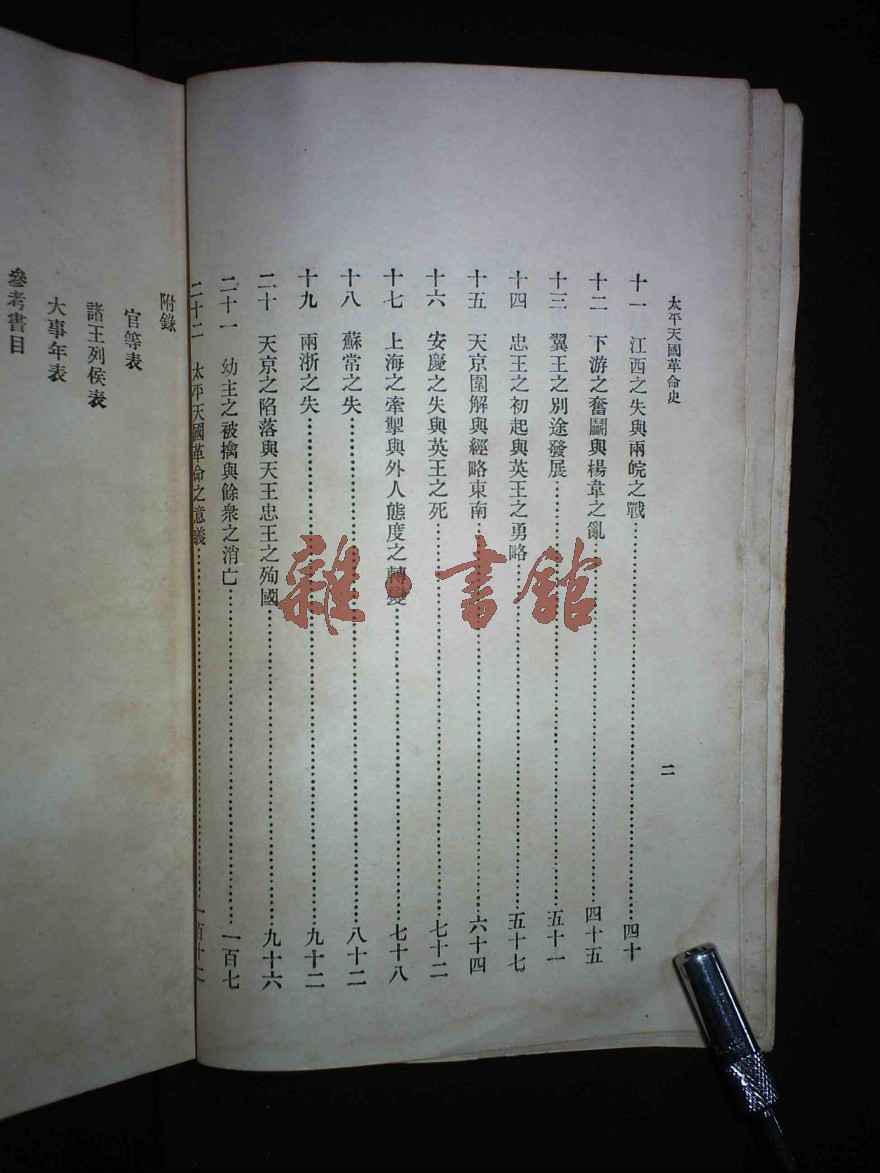 太平天國革命史
二
十一 江西之失與兩皖之戰……四十
十二 下游之奮鬭與楊韋之亂……四十五
十三 翼王之別途發展……五十一
十四 忠王之初起與英王之勇略……五十七
十五 天京圍解與經略東南……六十四
十六 安慶之失與英王之死……七十二
十七 上海之牽掣與外人態度之轉變……七十八
十八 蘇常之失……八十二
十九 兩浙之失……九十二
二十 天京之陷落與天王忠王之殉國……九十六
二十一 幼主之被擒與餘衆之消亡……一百七
二十二 太平天國革命之意義……一百十二
附錄
官等表
諸王列侯表
大事年表
參考書目
雜·書館